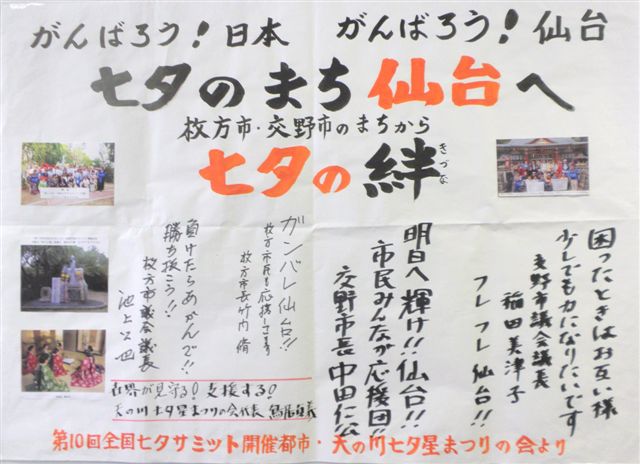 がんばろう！日本　がんばろう！仙台
七夕のまち仙台へ
枚方市・交野市のまちから
七夕の絆
きづな
困ったときはお互い様
少しでも力になりたいです
交野市議会議長
稲田美津子
フレフレ仙台!!
明日へ輝け!!仙台!!
市民みんなが応援団!!
交野市長 中田仁公
ガンバレ仙台!!
枚方市民も応援してます
枚方市長 竹内脩
負けたらあかんで!!
勝ち抜こう!!
枚方市議会議長
池上
世界が見守る！支援する！
天の川七夕星まつりの会代表
第10回全国七夕サミット開催都市・天の川七夕星まつりの会より